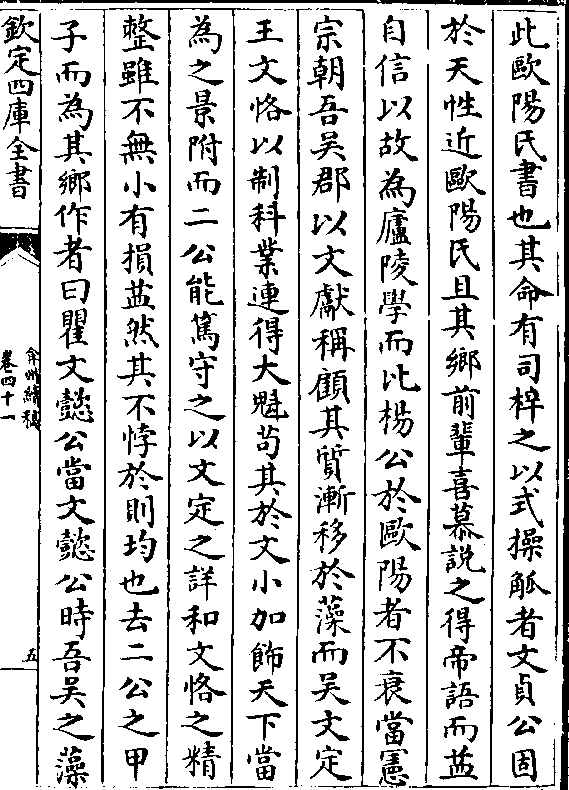 此歐陽氏書也其命有司梓之以式操觚者文貞公固
於天性近歐陽氏且其鄉前輩喜慕説之得帝語而益
自信以故為廬陵學而比楊公於歐陽者不衰當憲
宗朝吾吳郡以文獻稱顧其質漸移於藻而吳文定
王文恪以制科業連得大魁苟其於文小加飾天下當
為之景附而二公能篤守之以文定之詳和文恪之精
整雖不無小有損益然其不悖於則均也去二公之甲
子而為其鄉作者曰瞿文懿公當文懿公時吾吳之藻
欽定四庫全書
弇州續稿
卷四十一
五